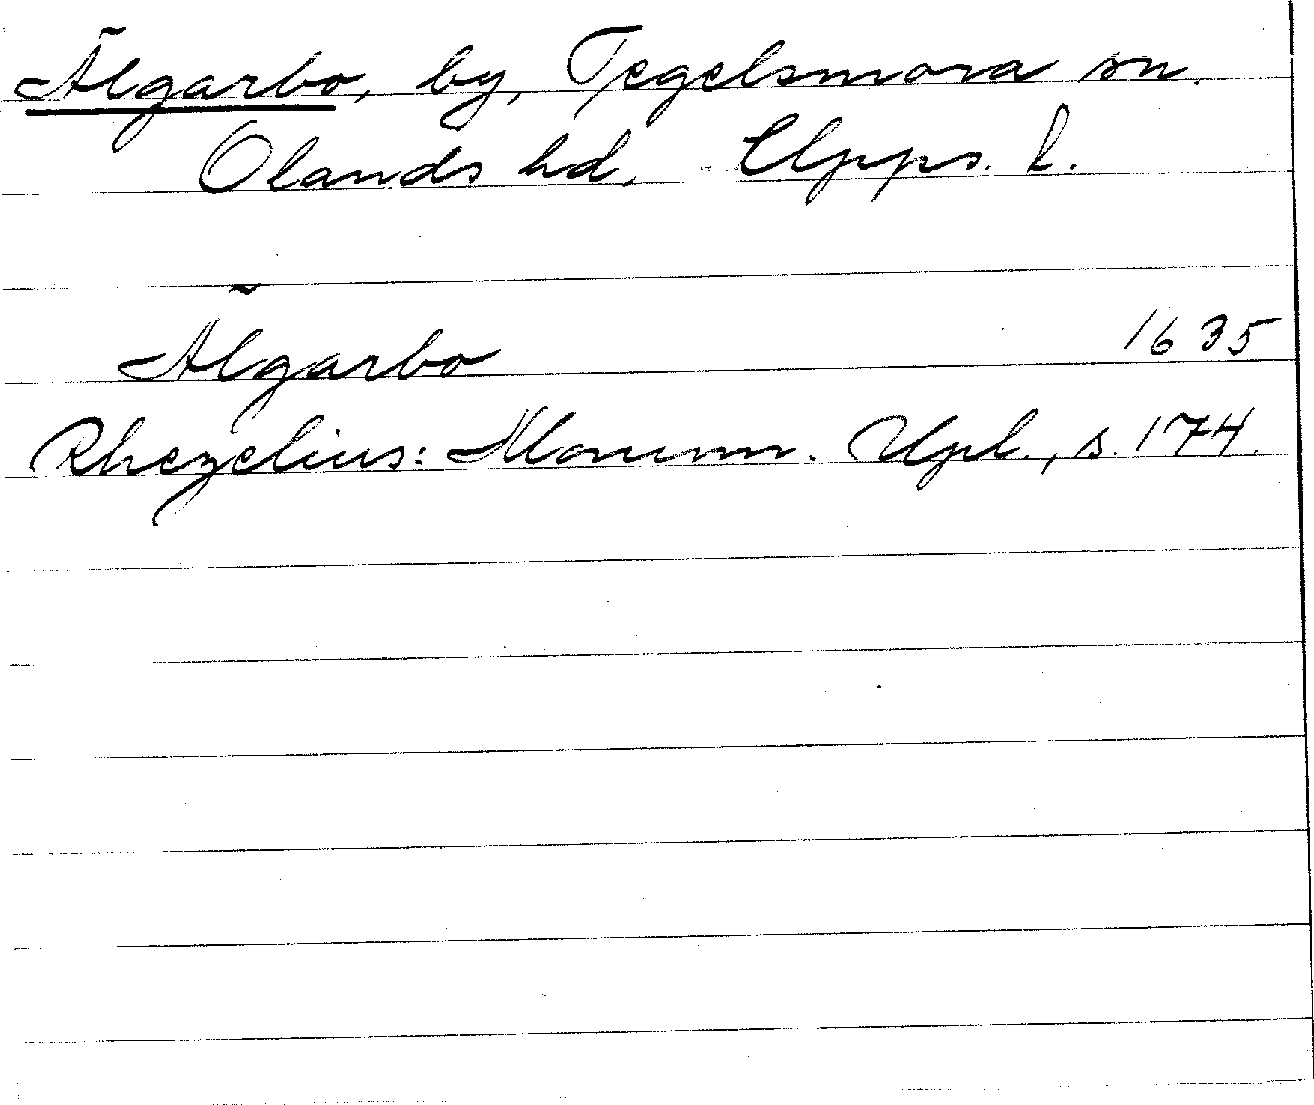 Älgarbo, by, Tegelsmora sn.
Olands hd, Upps. l.
Älgarbo 1635
Rhezelius: Monum. Upl., s. 174.